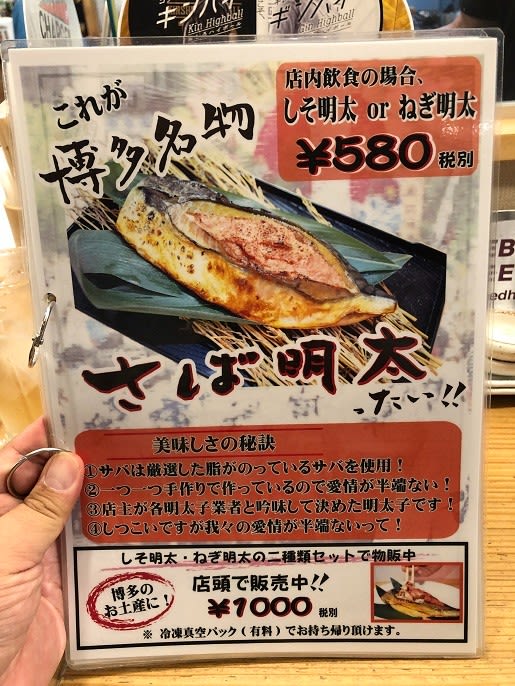 ギンハイ
Kin Highball
ギンハイ
Kin Highball
これが
博多名物
店内飲食の場合、
しそ明太 or ねぎ明太
¥580 税別
さば明太
ったい!!
美味しさの秘訣
①サバは厳選した脂がのっているサバを使用！
②一つ一つ手作りで作っているので愛情が半端ない！
③店主が各明太子業者と吟味して決めた明太子です！
④しつこいですが我々の愛情が半端ないって！
しそ明太・ねぎ明太の二種類セットで物販中
博多の
お土産に！
店頭で販売中!!
¥1000 税別
※ 冷凍真空パック(有料)でお持ち帰り頂けます。